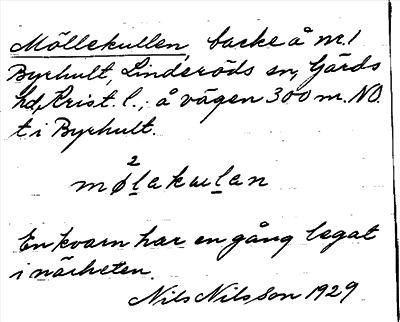 Möllekullen, backe å m. 1
Byrhult, Linderöds sn, Gärds
hd, Krist. l., å vägen 300 m. NO.
t i Byrhult.
2
møl̲akuel̲an
En kvarn har en gång legat
i närheten.
Nils Nilsson 1929